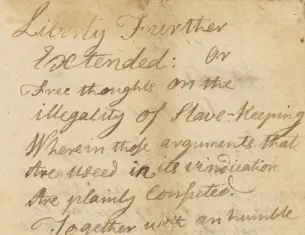 Liberty Further
Extended: Or
Free thoughts on the
illegality of Slave-keeping
Wherein those arguments that
Are useed in its vindication
Are plainly confuted.
Together with an humble